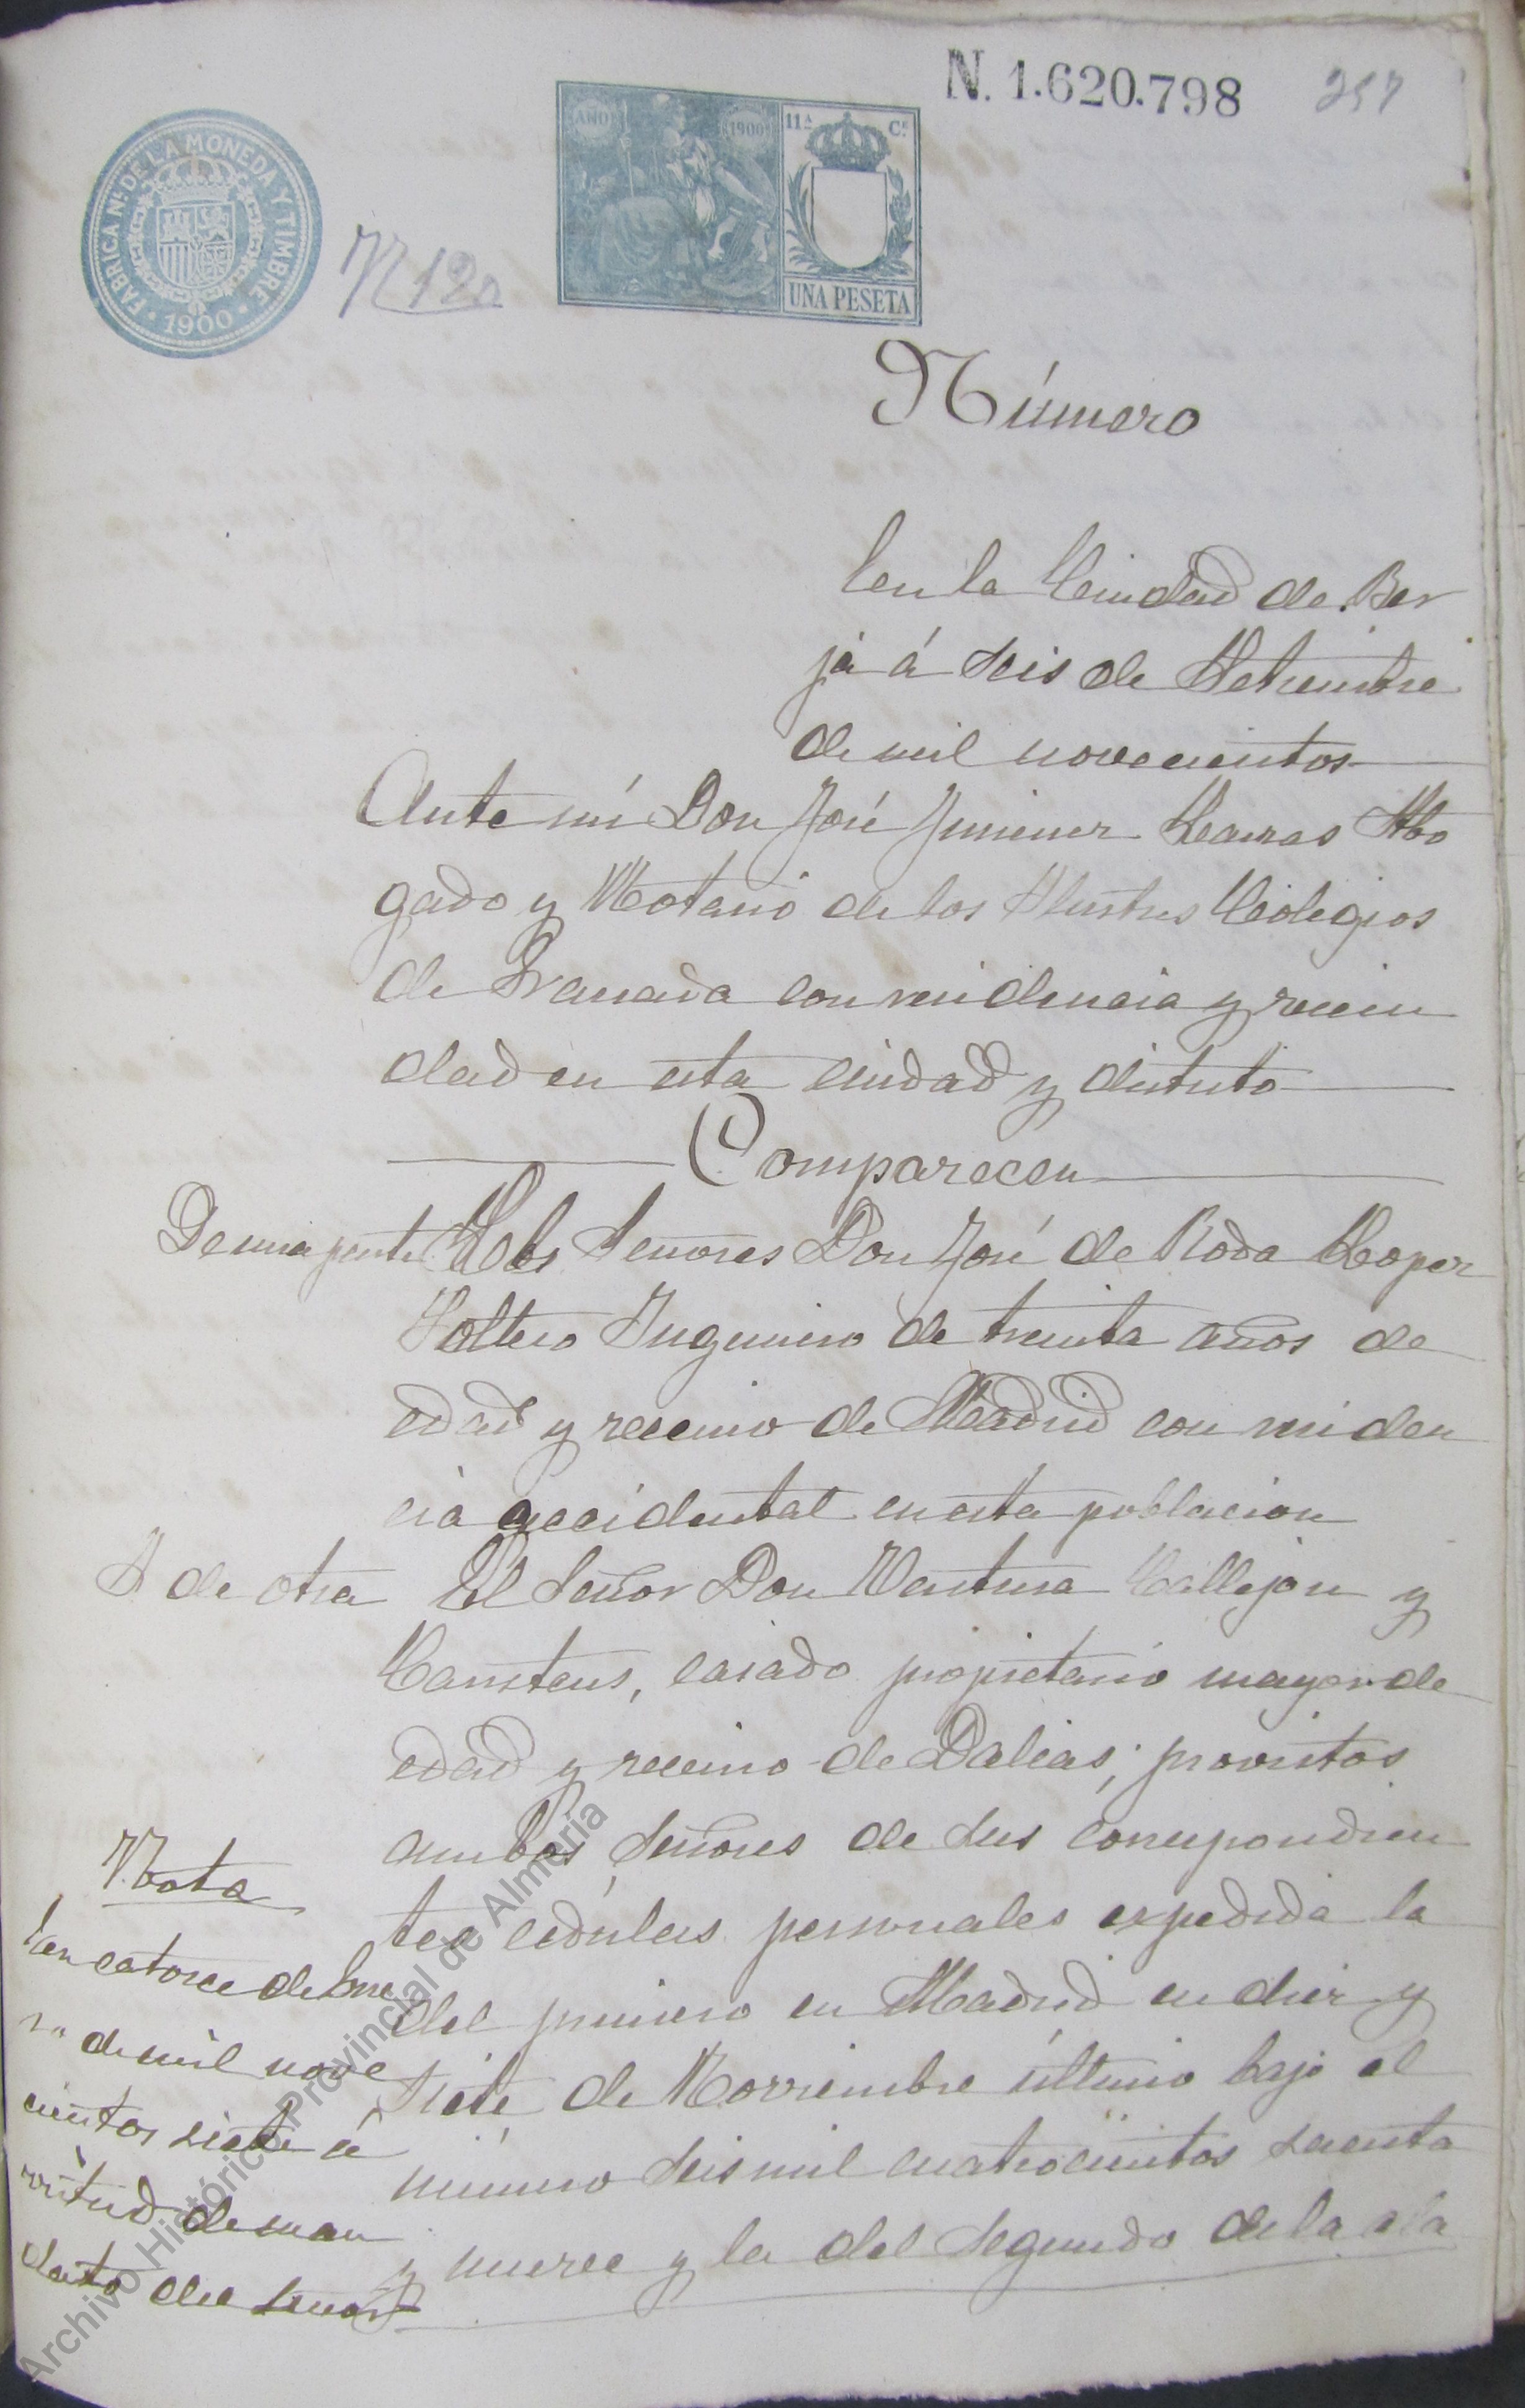 N. 1.620.798 257
FABRICA NL. DE LA MONEDA Y TIMBRE
1900
Nº 120
AÑO 1900 11ª Cª
UNA PESETA
Número
En la Ciudad de Ber
ja á seis de Setiembre
de mil novecientos
Ante mí Don José Jimenez Lamas Abo
gado y Notario de los Ilustres Colegios
de Granada con residencia y vecin
dad en esta ciudad y distrito
Comparecen
De una parte Los Señores Don José de Roda Lopez
Soltero Ingeniero de treinta años de
edad y vecino de Madrid con residen
cia accidental en esta poblacion
Y de otra El Señor Don Ventura Callejon y
casado propietario mayor de
edad y vecino de Dalias; provistos
ambos Señores de sus correspondien
tes cedulas personales expedida la
del primero en Madrid en diez y
siete de Noviembre último bajo el
número seis mil cuatrocientos sesenta
y nueve y la del segundo de la
Nota
En catorce de Ene
ro de mil nove
cientos siete á
virtud de man
dato del Señor
Archivo Histórico Provincial de Almería